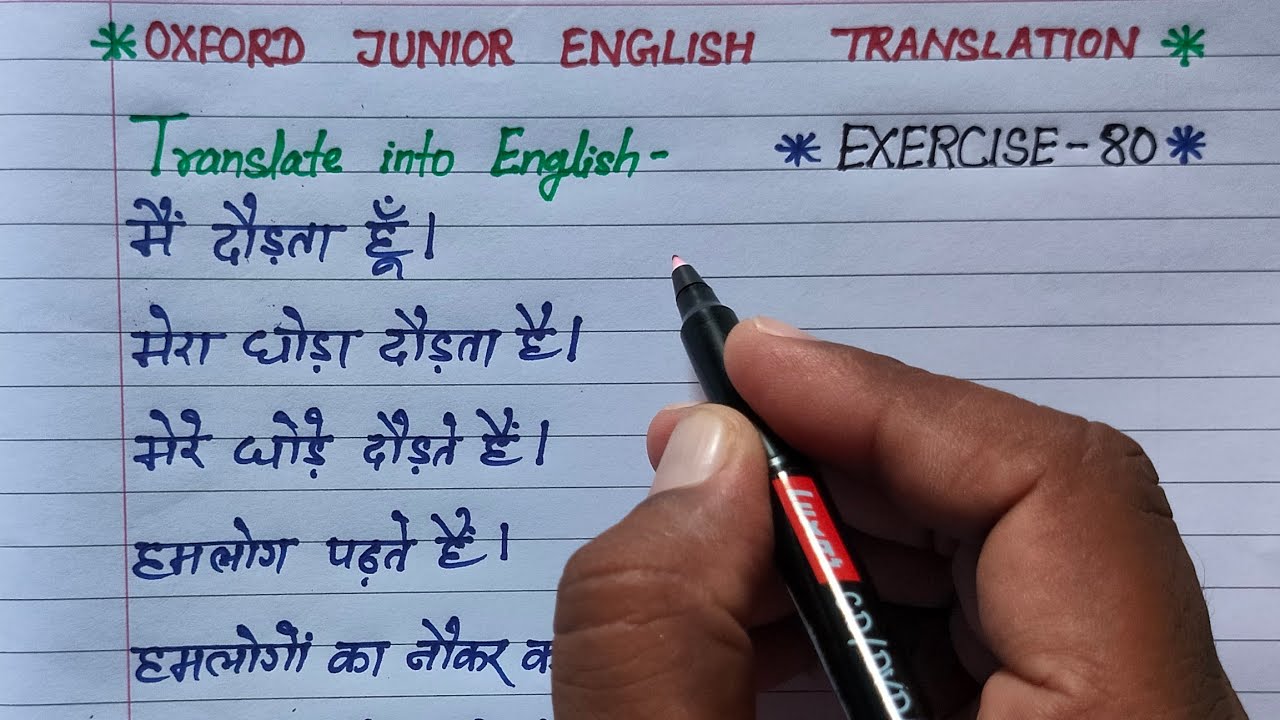 *OXFORD JUNIOR ENGLISH TRANSLATION*
Translate into English-
*EXERCISE-80*
मैं दौड़ता हूँ।
मेरा घोड़ा दौड़ता है।
मेरे घोड़े दौड़ते हैं।
हमलोग पढ़ते हैं।
हमलोगों का नौकर